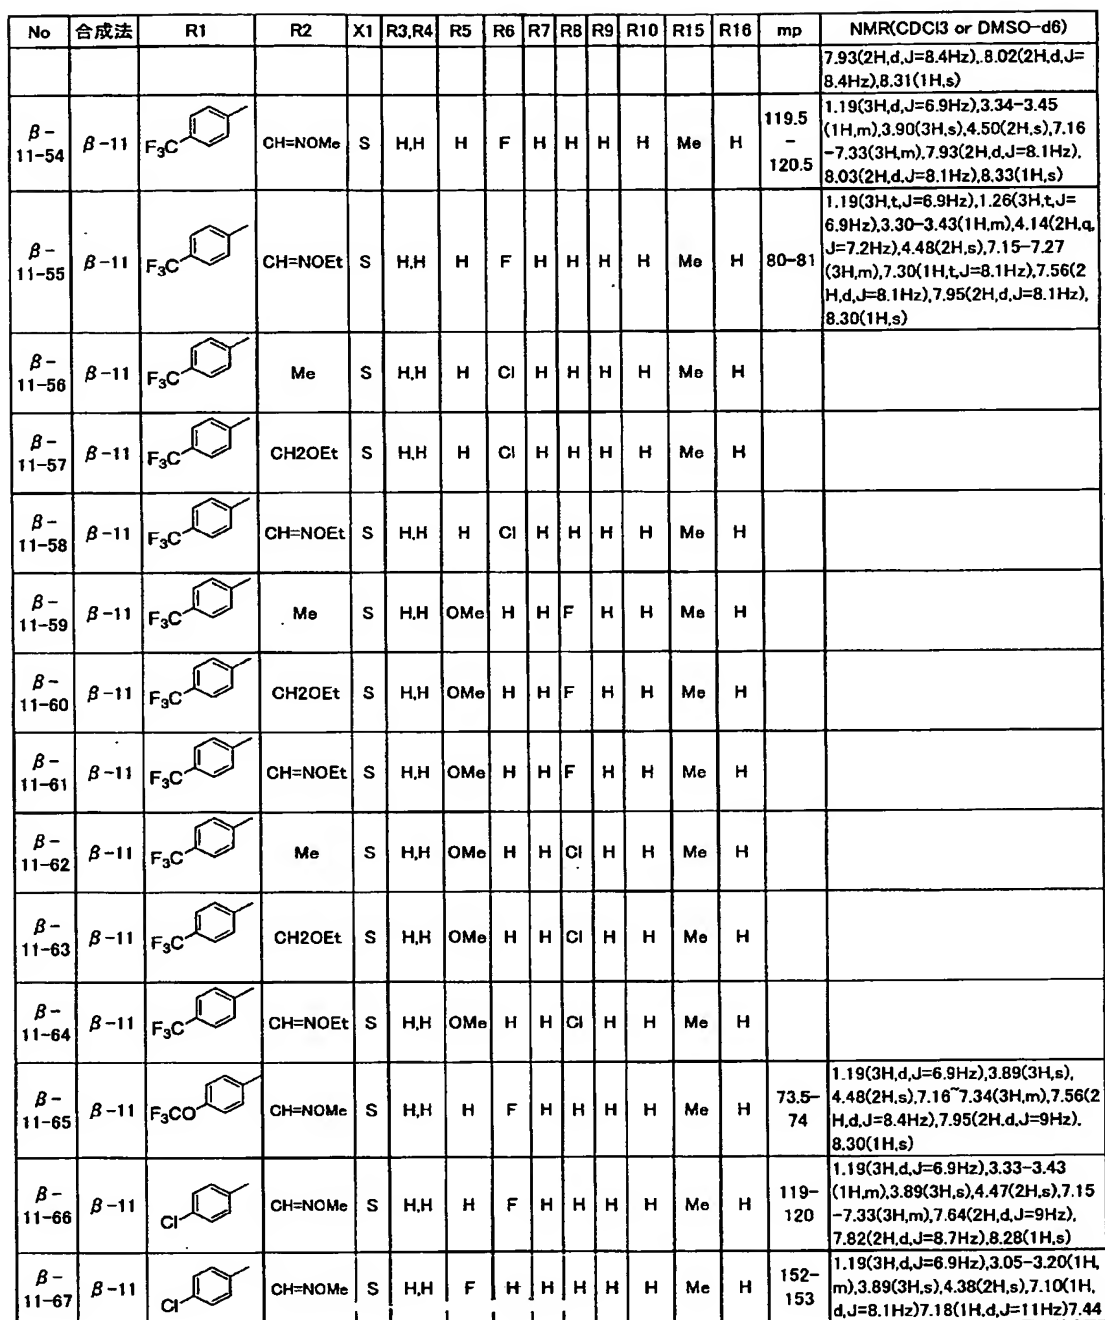 No 合成法 R1 R2 X1 R3,R4 R5 R6 R7 R8 R9 R10 R15 R16 mp NMR(CDCl3 or DMSO-d6)
7.93(2H,d,J=8.4Hz),8.02(2H,d,J=
8.4Hz),8.31(1H,s)
β-
11-54 β-11 F3C CH=NOMe S H,H H F H H H H Me H 119.5
-
120.5
1.19(3H,d,J=6.9Hz),3.34-3.45
(1H,m),3.90(3H,s),4.50(2H,s),7.16
-7.33(3H,m),7.93(2H,d,J=8.1Hz),
8.03(2H,d,J=8.1Hz),8.33(1H,s)
β-
11-55 β-11 F3C CH=NOEt S H,H H F H H H H Me H 80-81
1.19(3H,t,J=6.9Hz),1.26(3H,t,J=
6.9Hz),3.30-3.43(1H,m),4.14(2H,q,
J=7.2Hz),4.48(2H,s),7.15-7.27
(3H,m),7.30(1H,t,J=8.1Hz),7.56(2
H,d,J=8.1Hz),7.95(2H,d,J=8.1Hz),
8.30(1H,s)
β-
11-56 β-11 F3C Me S H,H H Cl H H H H Me H
β-
11-57 β-11 F3C CH2OEt S H,H H Cl H H H H Me H
β-
11-58 β-11 F3C CH=NOEt S H,H H Cl H H H H Me H
β-
11-59 β-11 F3C Me S H,H OMe H H F H H Me H
β-
11-60 β-11 F3C CH2OEt S H,H OMe H H F H H Me H
β-
11-61 β-11 F3C CH=NOEt S H,H OMe H H F H H Me H
β-
11-62 β-11 F3C Me S H,H OMe H H Cl H H Me H
β-
11-63 β-11 F3C CH2OEt S H,H OMe H H Cl H H Me H
β-
11-64 β-11 F3C CH=NOEt S H,H OMe H H Cl H H Me H
β-
11-65 β-11 F3CO CH=NOMe S H,H H F H H H H Me H 73.5-
74
1.19(3H,d,J=6.9Hz),3.89(3H,s),
4.48(2H,s),7.16~7.34(3H,m),7.56(2
H,d,J=8.4Hz),7.95(2H.d,J=9Hz).
8.30(1H,s)
β-
11-66 β-11 Cl CH=NOMe S H,H H F H H H H Me H 119-
120
1.19(3H,d,J=6.9Hz),3.33-3.43
(1H,m),3.89(3H,s),4.47(2H,s),7.15
-7.33(3H,m),7.64(2H,d,J=9Hz),
7.82(2H,d,J=8.7Hz),8.28(1H,s)
β-
11-67 β-11 Cl CH=NOMe S H,H F H H H H H Me H 152-
153
1.19(3H,d,J=6.9Hz),3.05-3.20(1H,
m),3.89(3H,s),4.38(2H,s),7.10(1H,
d,J=8.1Hz)7.18(1H,d,J=11Hz)7.44